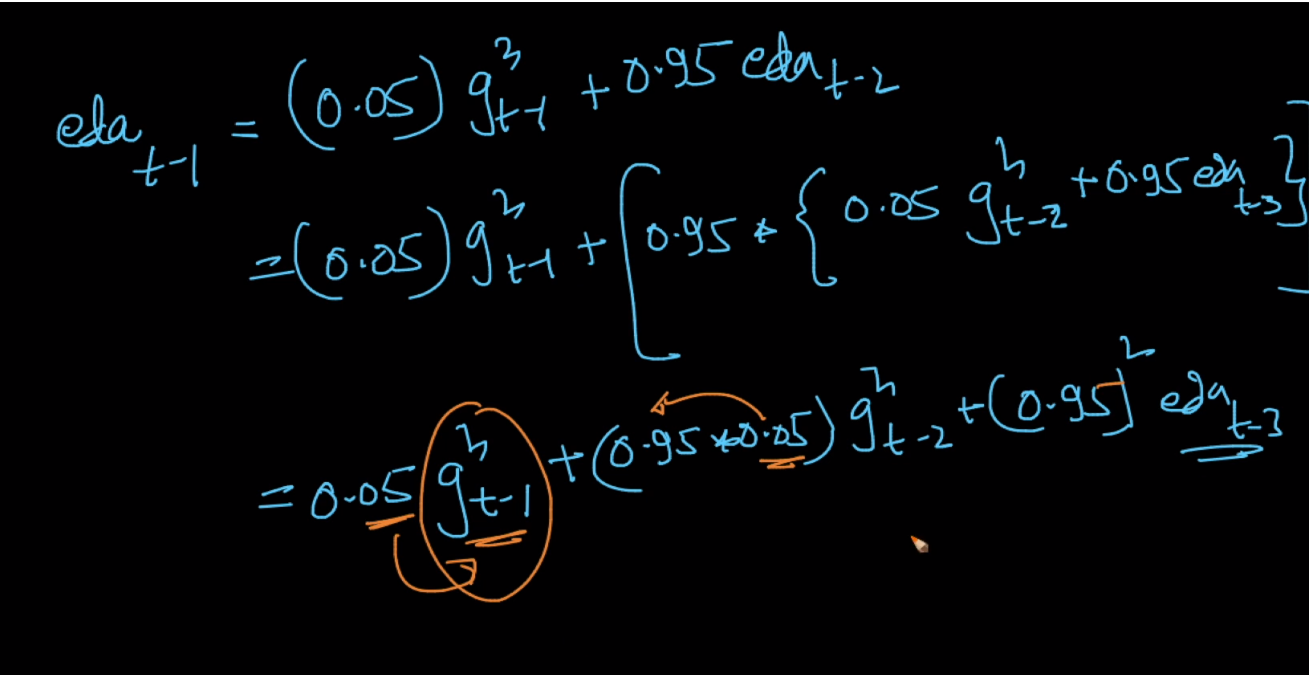 eda_{t-1} = (0.05) g_{t-1}^2 + 0.95 eda_{t-2}
= (0.05) g_{t-1}^2 + [0.95 * {0.05 g_{t-2}^2 + 0.95 eda_{t-3}}]
= 0.05 g_{t-1}^2 + (0.95 * 0.05) g_{t-2}^2 + (0.95)^2 eda_{t-3}